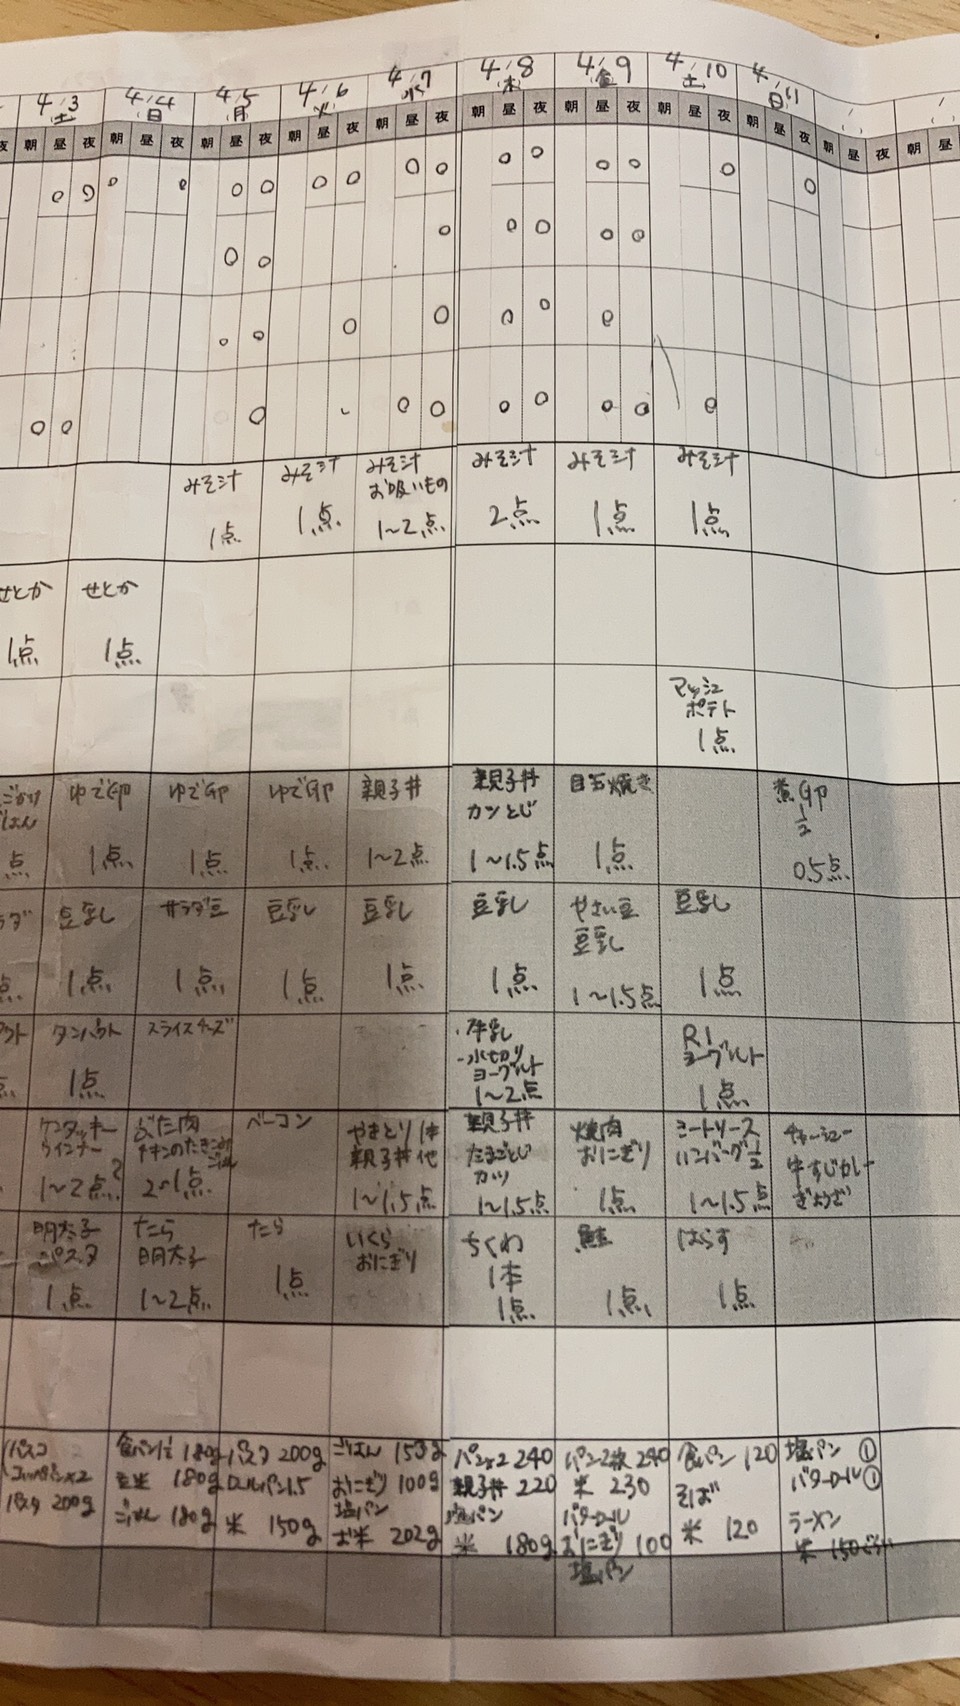 4/3 4/4 4/5 4/6 4/7 4/8 4/9 4/10 4/11
(土) (日) (月) 火 水 (木) (金) 土 日
夜 朝 昼 夜 朝 昼 夜 朝 昼 夜 朝 昼 夜 朝 昼 夜 朝 昼 夜 朝 昼 夜 朝 昼 夜 朝 昼 夜 朝 昼 夜 朝 昼
みそ汁 みそ汁 みそ汁 みそ汁 みそ汁 みそ汁
お吸いもの
1点 1点 1~2点 2点 1点 1点
せとか せとか
1点 1点
マッシュ
ポテト
1点
ゆで卵 ゆで卵 ゆで卵 親子丼 親子丼 目玉焼き 煮卵
ごはん カツとじ 1/2
点 1点 1点 1点 1~2点 1~1.5点 1点 0.5点
ラダ 豆乳 サラダ豆 豆乳 豆乳 豆乳 やさい豆 豆乳
豆乳
点 1点 1点 1点 1点 1点 1~1.5点 1点
スライスチーズ ・牛乳 R1
-水切り ヨーグルト
ヨーグルト
1点 1~2点 1点
ケンタッキー ぶた肉 ベーコン やきとり1本 親子丼 焼肉 ミートソース チャーシュー
ウインナー 親子丼他 たまごとじ おにぎり ハンバーグ1/2 牛すじカレー
カツ ぎょうざ
1~2点? 1~1.5点 1~1.5点 1点 1~1.5点
明太子 たら たら いくら ちくわ 鮭 はらす
パスタ 明太子 おにぎり 1本
1点 1~2点 1点 1点 1点 1点
パスコ 食パン 180g パスタ 200g ごはん 153g パン×2 240 パン2枚 240 食パン 120 塩パン ①
玄米 180g ロールパン1.5 おにぎり 100g 親子丼 220 米 230 そば バターロール①
パスタ 200g ごはん 180g 米 150g 塩パン 塩パン バターロール 米 120 ラーメン
お米 202g 米 180g おにぎり 100 米 150ぐらい
塩パン